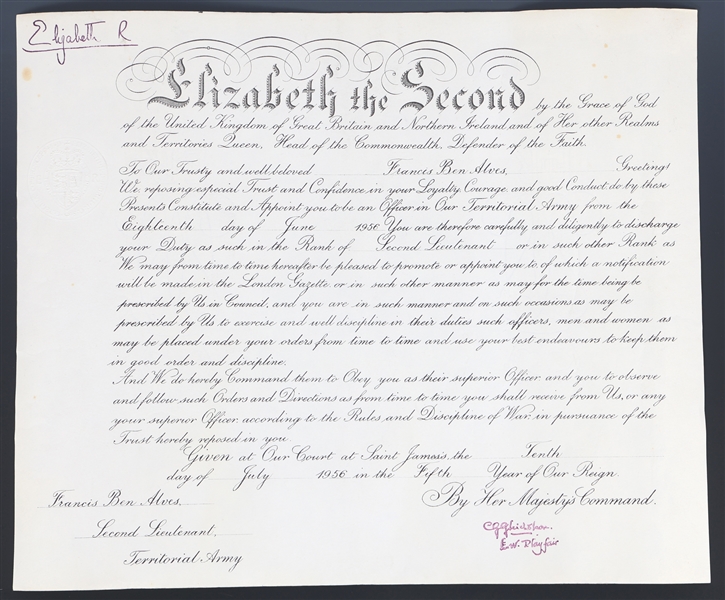 Elizabeth R
Elizabeth the Second by the Grace of God
of the United Kingdom of Great Britain and Northern Ireland and of Her other Realms
and Territories Queen, Head of the Commonwealth, Defender of the Faith.
To Our Trusty and well beloved Francis Ben Alves, Greeting!
We reposing especial Trust and Confidence in your Loyalty, Courage, and good Conduct do by these
Presents Constitute and Appoint you to be an Officer in Our Territorial Army from the
Eighteenth day of June 1950. You are therefore carefully and diligently to discharge
your Duty as such in the Rank of Second Lieutenant or in such other Rank as
We may from time to time hereafter be pleased to promote or appoint you to, of which a notification
will be made in the London Gazette, or in such other manner as may for the time being be
prescribed by Us in Council, and you are in such manner and on such occasions as may be
prescribed by Us to exercise and well discipline in their duties such officers, men and women as
may be placed under your orders from time to time and use your best endeavours to keep them
in good order and discipline.
And We do hereby Command them to Obey you as their superior Officer, and you to observe
and follow such Orders and Directions as from time to time you shall receive from Us, or any
your superior Officer, according to the Rules and Discipline of War, in pursuance of the
Trust hereby reposed in you.
Given at Our Court, at Saint James's, the Tenth
day of July 1956 in the Fifth Year of Our Reign
Francis Ben Alves, By Her Majesty's Command.
Second Lieutenant,
E.W. Playfair
Territorial Army